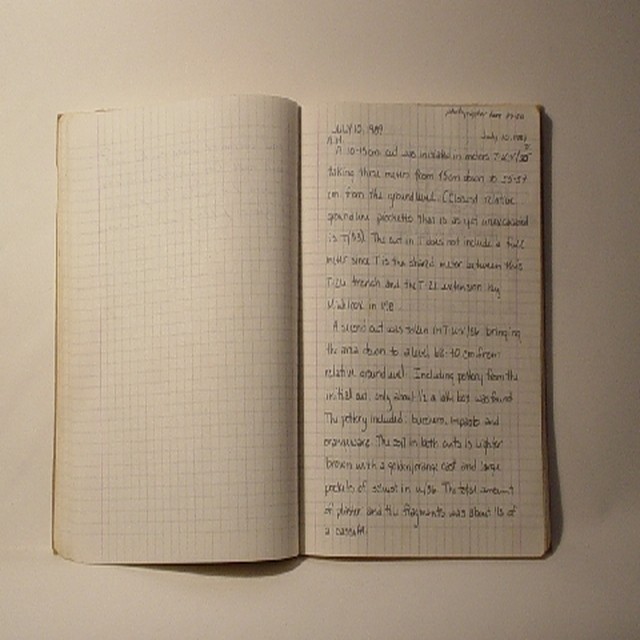 July 10, 1989
JULY 10, 1989
A.M.
A 10-15cm cut was initiated in meters
taking three meters from 15cm down to
cm from the ground level. (Closest relative
ground line that is as yet unexcavated
is The cut in T does not include a full
meter since T is the shared meter between this
trench and the extension by
in
A second cut was taken in bringing
the area down to a level cm from
relative ground level. Including pottery from the
initial cut, only about 1/2 a was found
The pottery included: bucchero, impasto and
orangeware. The soil in both cuts is lighter
brown with a golden/orange cast and large
pockets of in The total amount
of plaster and tile fragments was about 1/3 of
a cassetta.